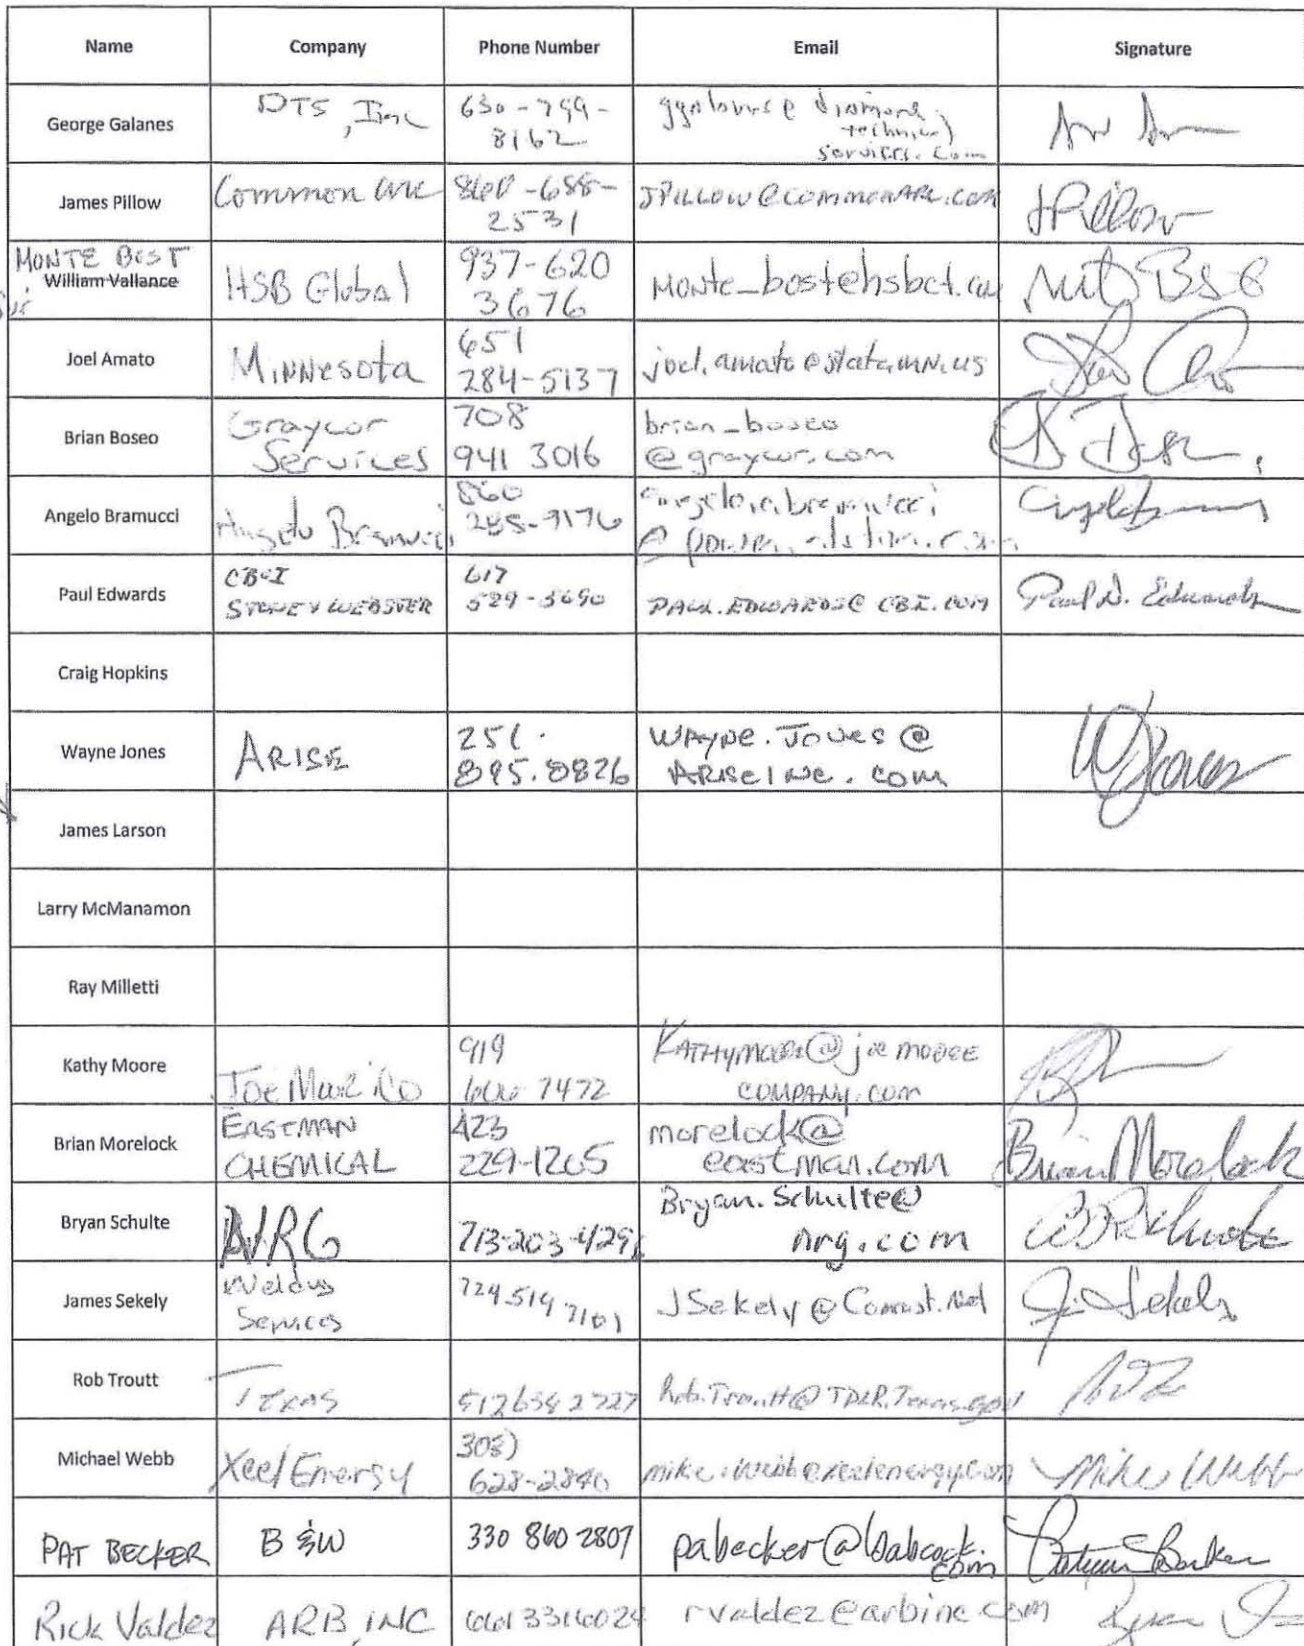 Name Company Phone Number Email Signature
George Galanes DTS, Inc 630-799-
8162
technical
services.com
James Pillow Common Arc 860-688-
2531 JPILLOW@COMMONARC.COM JPillow
MONTE BOST
William Vallance HSB Global 937-620
3676 Monte_bost@hsbct.com
Joel Amato Minnesota 651
284-5137 joel.amato@state.mn.us
Brian Boseo Graycor
Services 708
941 3016 brian_boseo
@graycor.com
Angelo Bramucci Angelo Bramucci 860
Paul Edwards CB&I
STONE & WEBSTER 617
589-5690 PAUL.EDWARDS@CBI.COM Paul D. Edwards
Craig Hopkins
Wayne Jones ARISE 251.
895.0826 WAYNE.JONES@
ARISEINC.COM WJones
James Larson
Larry McManamon
Ray Milletti
Kathy Moore Joe Moore Co 919
7472 KATHYMOORE@joemoore
COMPANY.com
Brian Morelock EASTMAN
CHEMICAL 423
229-1205 morelock@
eastman.com Brian Morelock
Bryan Schulte NRG 713-203-429 Bryan.Schulte@
nrg.com
James Sekely Welding
Services 724 519 7101 JSekely@Comcast.Net J Sekely
Rob Troutt Texas 512 658 2727 Rob.Troutt@TDLR.Texas.gov
Michael Webb Xcel Energy 303)
628-2840 mike.webb@xcelenergy.com Mike Webb
PAT BECKER B & W 330 860 2807 pabecker@babcock.
com
Rick Valdez ARB, INC 661 331 6024 rvaldez@arbinc.com